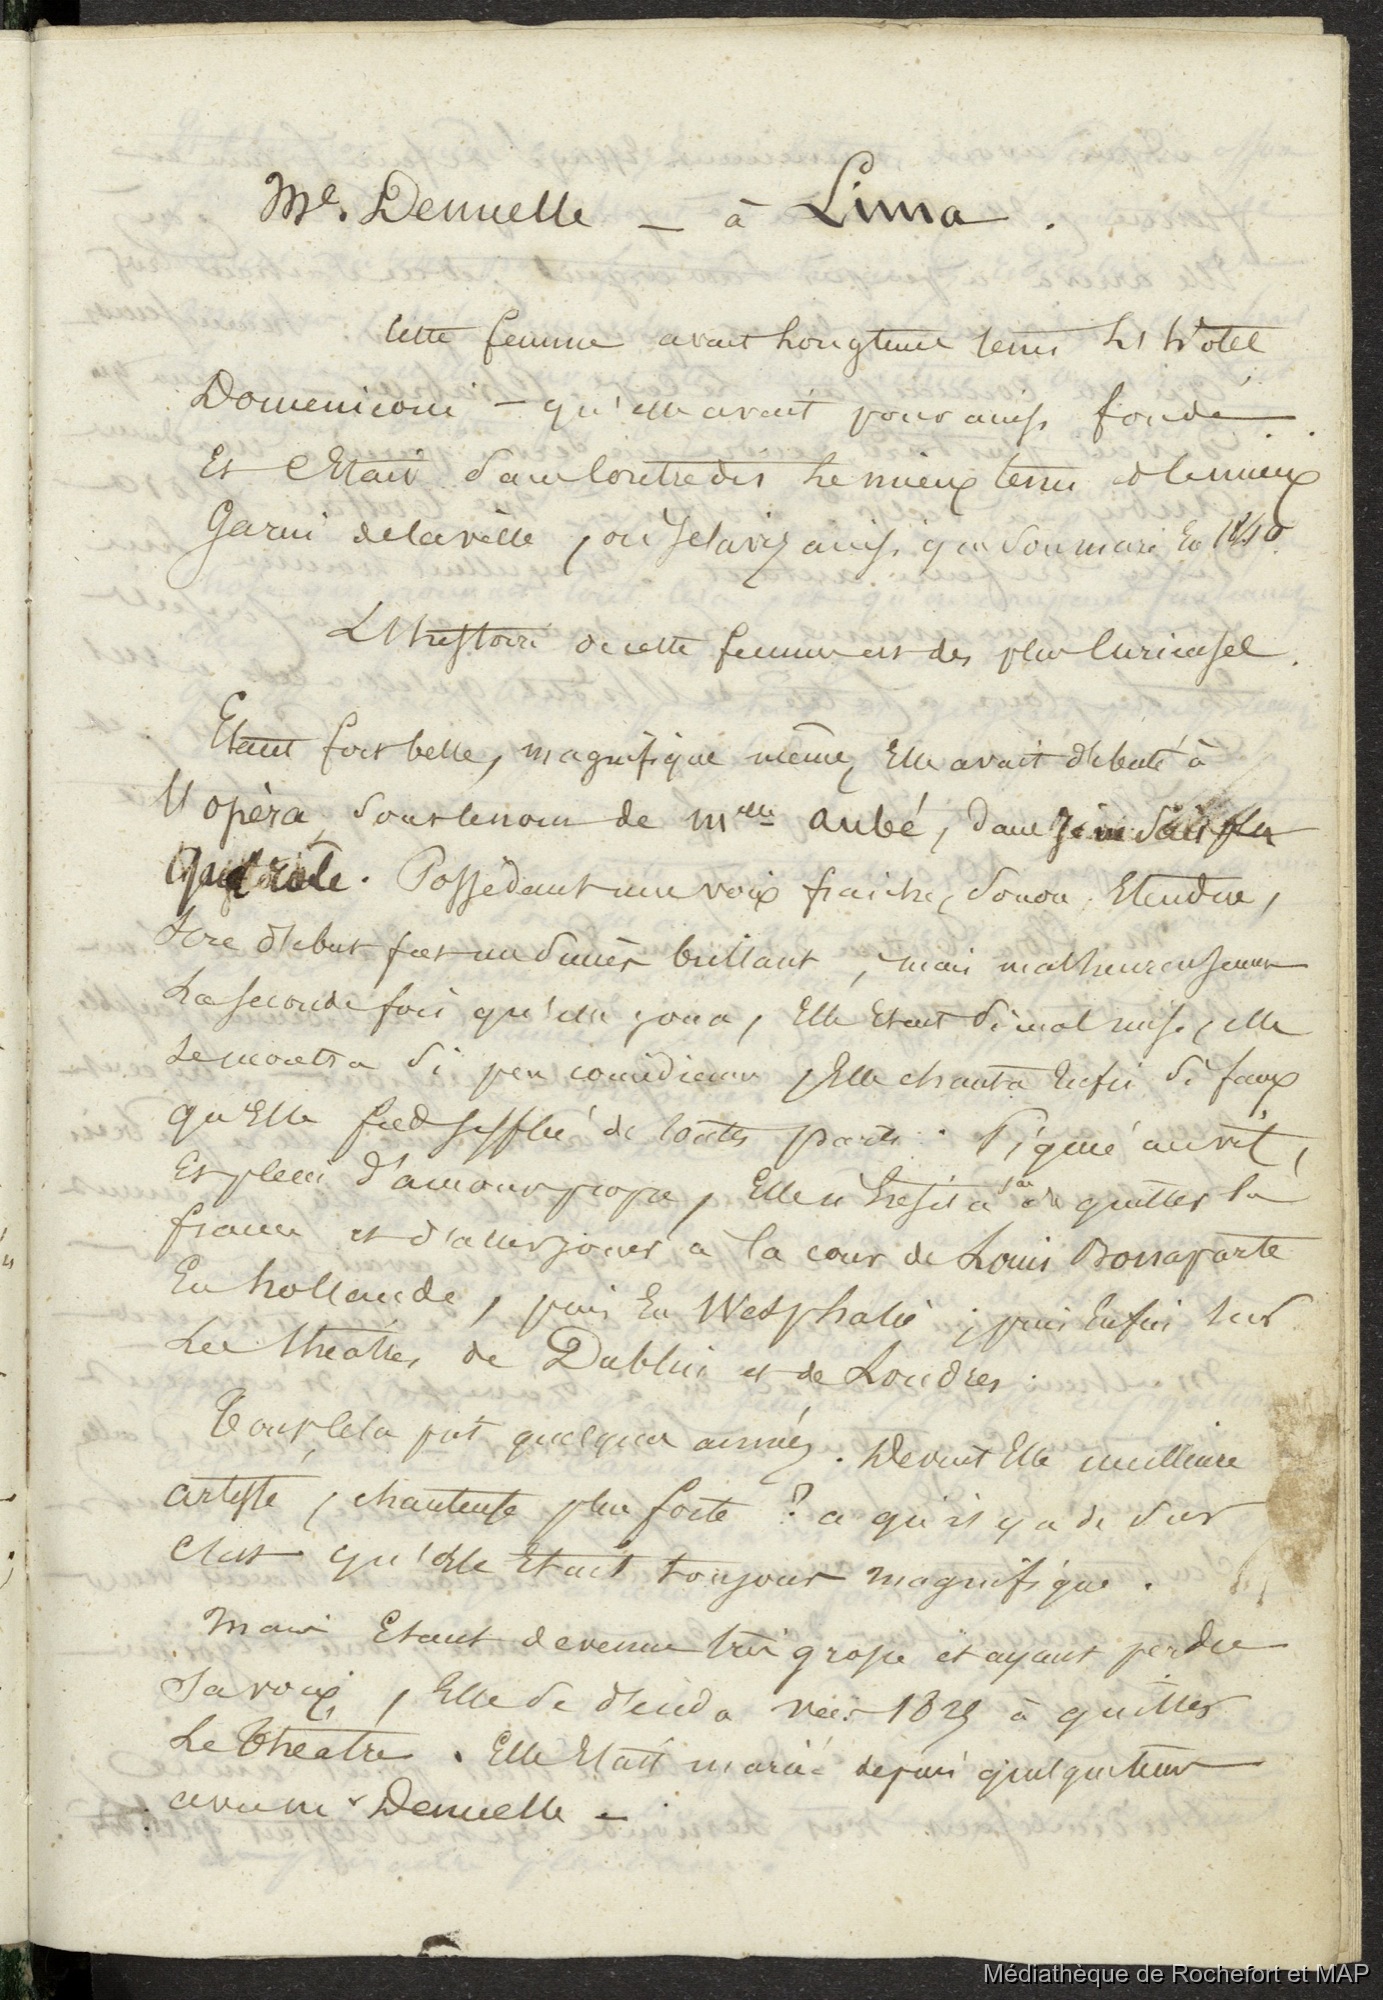 Me. Denuelle — à Lima.
Cette femme avait longtems tenu L'hotel
Domeniconi — qu'elle avait pour ainsi fondé.
Et c'était sans contredis le mieux tenu et le mieux
Garni de la ville, où je la vis ainsi que son mari En 1840.
L'histoire de cette femme est des plus curieuses.
Etant fort belle, magnifique même, Elle avait débuté à
L'opèra, sous le nom de melle aubé, dans je ne sais plus
quel role. Possèdant une voix fraiche, sonore, Etendue,
Son début fut un succès brillant, mais malheureusement
La seconde fois qu'elle joua, Elle Etait si mal mise, elle
se montra si peu comédienne, Elle chanta Enfin si faux
qu'Elle fut sifflée de toutes parts. Piquée au vif,
Et pleine d'amour propre, Elle n'hésita pas à quitter la
france et d'aller jouer à la cour de Louis Bonaparte
En hollande, puis En Westphalie, puis Enfin sur
Les théatres de Dublin et de Londres.
Tout cela prit quelques années. Devint Elle meilleure
artiste, chanteuse plus forte? ce qu'il y a de sur
C'est qu'Elle Etait toujours magnifique.
Mais Etant devenue très grosse et ayant perdue
sa voix, Elle se décida vers 1825 à quitter
Le Théatre. Elle Etait mariée depuis quelque tems
avec mr Denuelle —.
Médiathèque de Rochefort et MAP